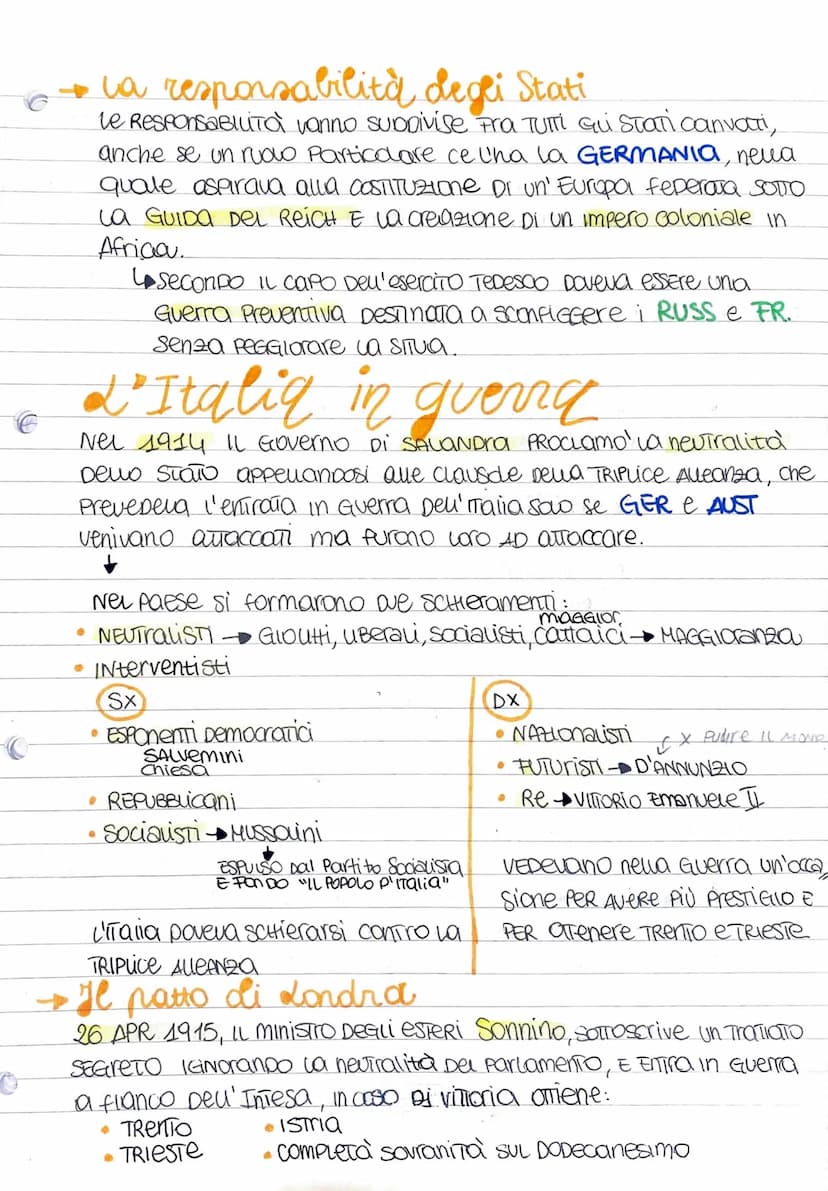 → La responsabilità degli Stati
Le RESPONSABILITÀ vanno SUDDIVISE FRA TUTTI GLI STATI,
anche se un ruolo Particolare ce l'ha la GERMANIA, nella
quale aspirava alla COSTITUZIONE DI un'EUROPA FEDERATA SOTTO
LA GUIDA DEL REICH E la creazione DI un impero coloniale in
Africa.
↳ SECONDO IL CAPO DELL'ESERCITO TEDESCO DOVEVA ESSERE una
GUERRA PREVENTIVA DESTINATA a SCONFIGGERE i RUSS e FR.
senza PEGGIORARE LA SITUA.
L'Italia in guerra
Nel 1914 IL GOVERNO DI SALANDRA PROCLAMÒ la neutralità
DELLO STATO appellandosi alle clausole DELLA TRIPLICE ALLEANZA, che
PREVEDEVA l'entrata in GUERRA DELL'ITALIA SOLO SE GER e AUST
venivano attaccati ma furono loro AD attaccare.
↓
Nel PAESE si formarono DUE SCHIERAMENTI:
maggior.
• NEUTRALISTI → GIOLITTI, LIBERALI, SOCIALISTI, cattolici → MAGGIORANZA
• INTERVENTISTI
SX
• ESPONENTI DEMOCRATICI
SALVEMINI
CHIESA
• REPUBBLICANI
• SOCIALISTI → MUSSOLINI
↓
ESPULSO Dal Partito Socialista
E FONDÒ "IL POPOLO D'ITALIA"
L'ITALIA DOVEVA SCHIERARSI CONTRO LA
TRIPLICE ALLEANZA
DX
• NAZIONALISTI
x PULIRE IL
• FUTURISTI → D'ANNUNZIO
• RE → VITTORIO EMANUELE II
VEDEVANO nella GUERRA un'occa
sione PER AVERE PIÙ PRESTIGIO E
PER OTTENERE TRENTO e TRIESTE
→ Il patto di Londra
26 APR 1915, IL MINISTRO DEGLI ESTERI Sonnino, SOTTOSCRIVE un TRATTATO
SEGRETO IGNORANDO LA neutralità DEL PARLAMENTO, E ENTRA in GUERRA
a fianco DELL'INTESA, in caso DI vittoria ottiene:
• TRENTO
• TRIESTE
• ISTRIA
• COMPLETA SOVRANITÀ SUL DODECANESIMO